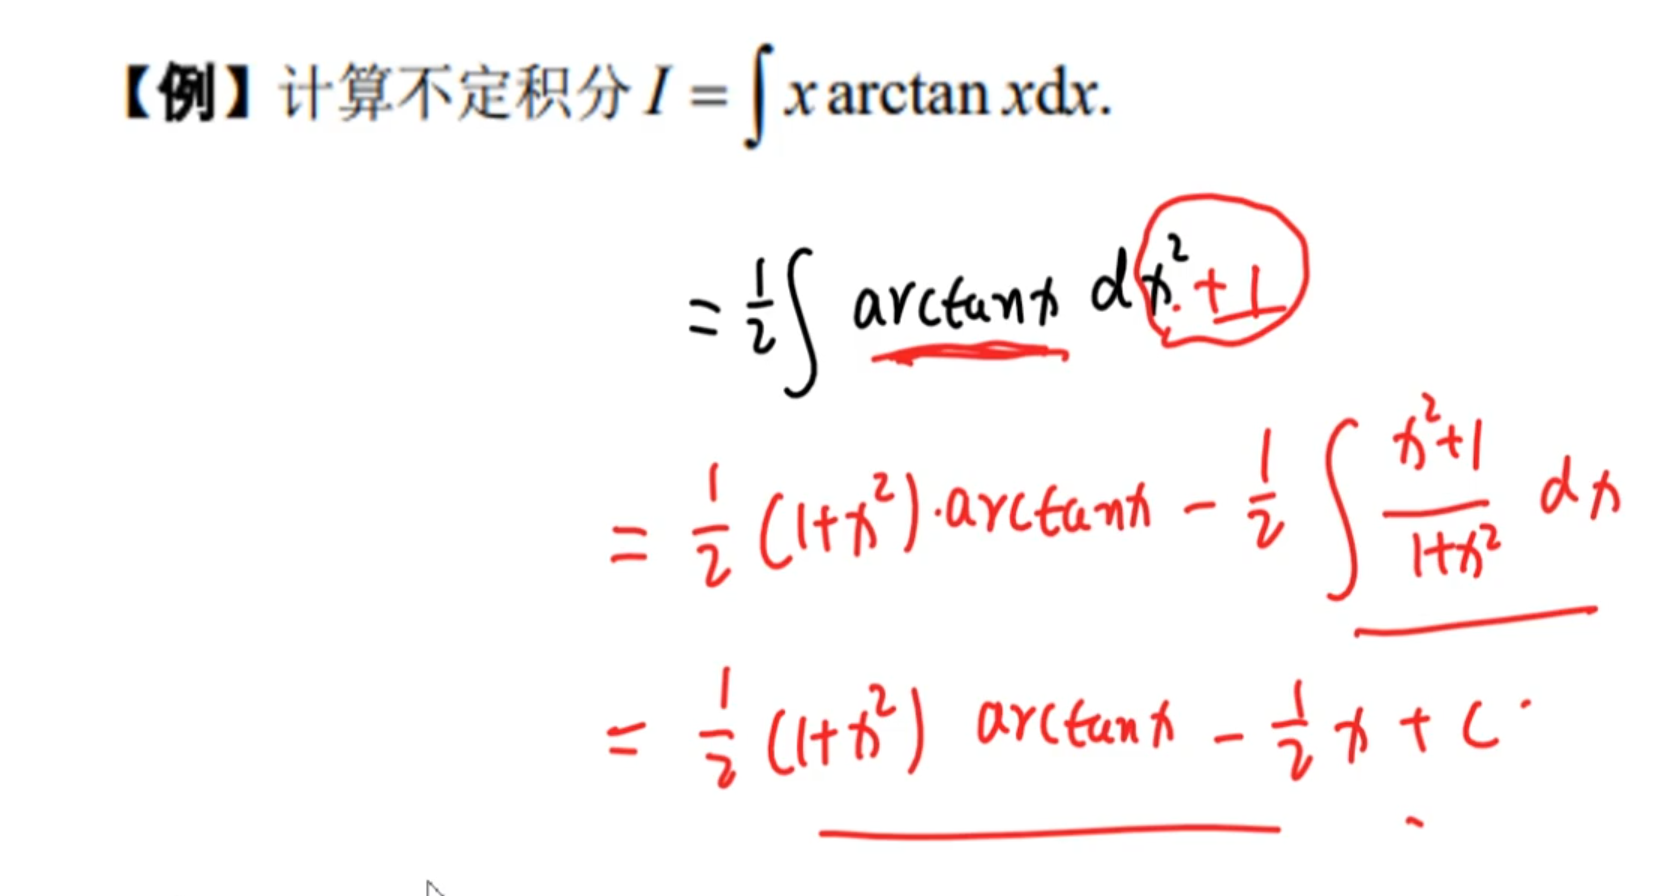 【例】计算不定积分 I = ∫ x arctan x dx.
= 1/2 ∫ arctanx d x² + 1
= 1/2 (1+x²)·arctanx - 1/2 ∫ (x²+1)/(1+x²) dx
= 1/2 (1+x²) arctanx - 1/2 x + C